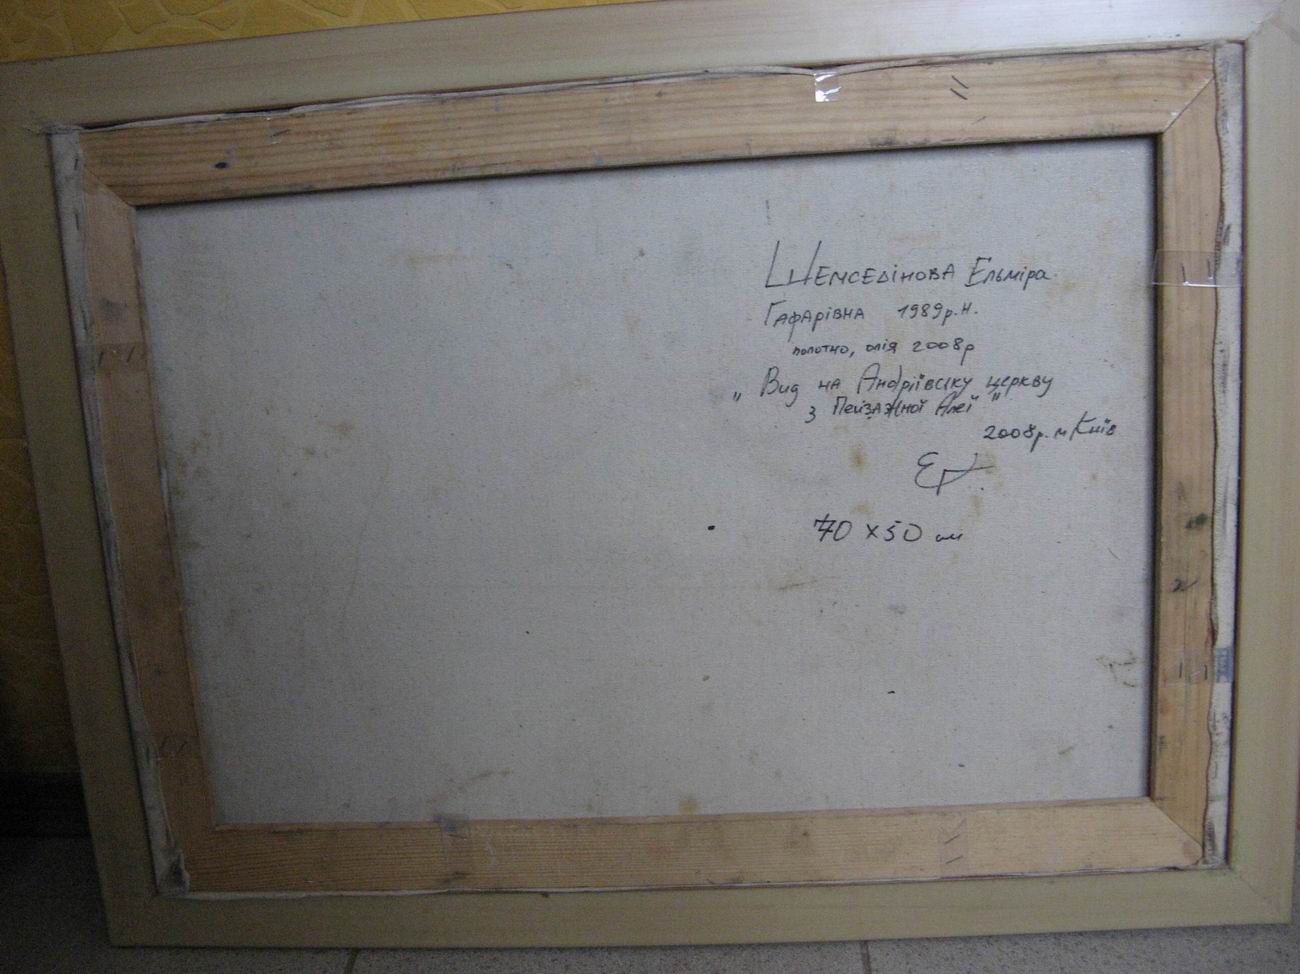 Шемседінова Ельміра
Гафарівна 1989р.н.
полотно, олія 2008р
„Вид на Андріївську церкву
з Пейзажної Алеї"
2008р. м Київ
70 х 50 см